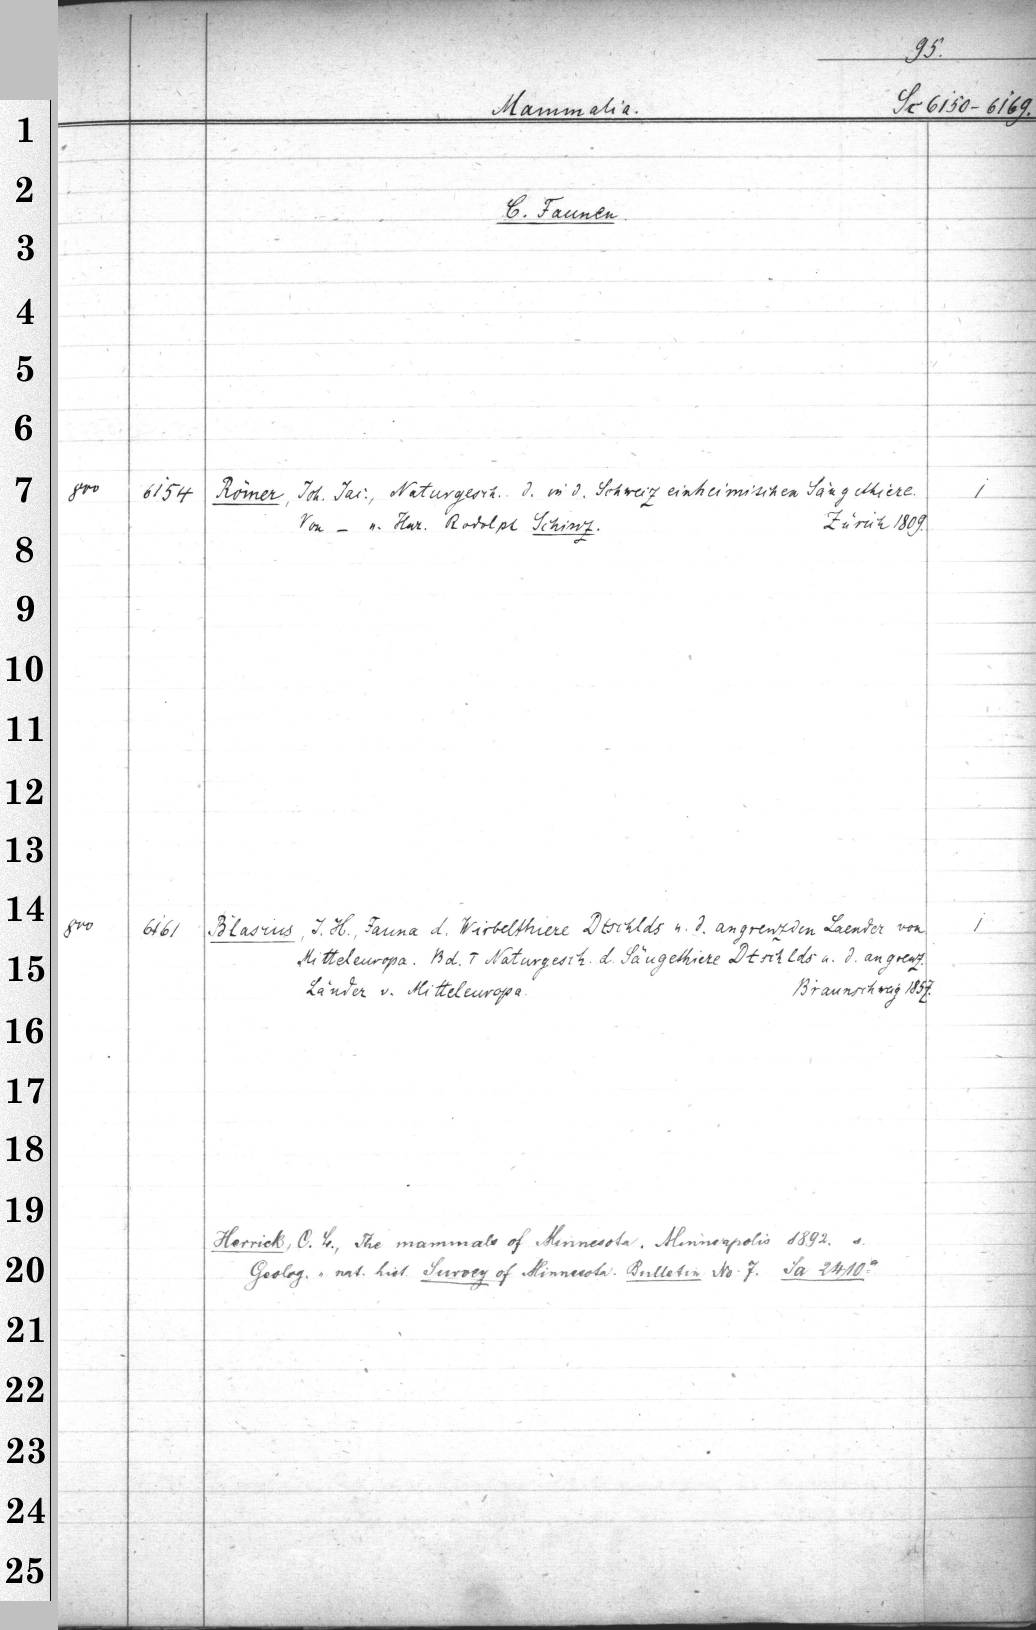 95.
Mammalia. Sc 6150-6169.
C. Faunen.
8vo 6154 Römer, Joh. Jac., Naturgesch. d. in d. Schweiz einheimischen Säugethiere. 1
Von _ u. Hnr. Rodolph Schinz. Zürich 1809.
8vo 6161 Blasius, J. H., Fauna d. Wirbelthiere Dtschlds u. d. angrenzden Laender von 1
Mitteleuropa. Bd. I Naturgesch. d. Säugethiere Dtschlds u. d. angrenz.
Länder v. Mitteleuropa. Braunschweig 1857.
Herrick, C. L., The mammals of Minnesota. Minneapolis 1892. s.
Geolog. " nat. hist. Survey of Minnesota. Bulletin No. 7. Sa 2410a
1
2
3
4
5
6
7
8
9
10
11
12
13
14
15
16
17
18
19
20
21
22
23
24
25